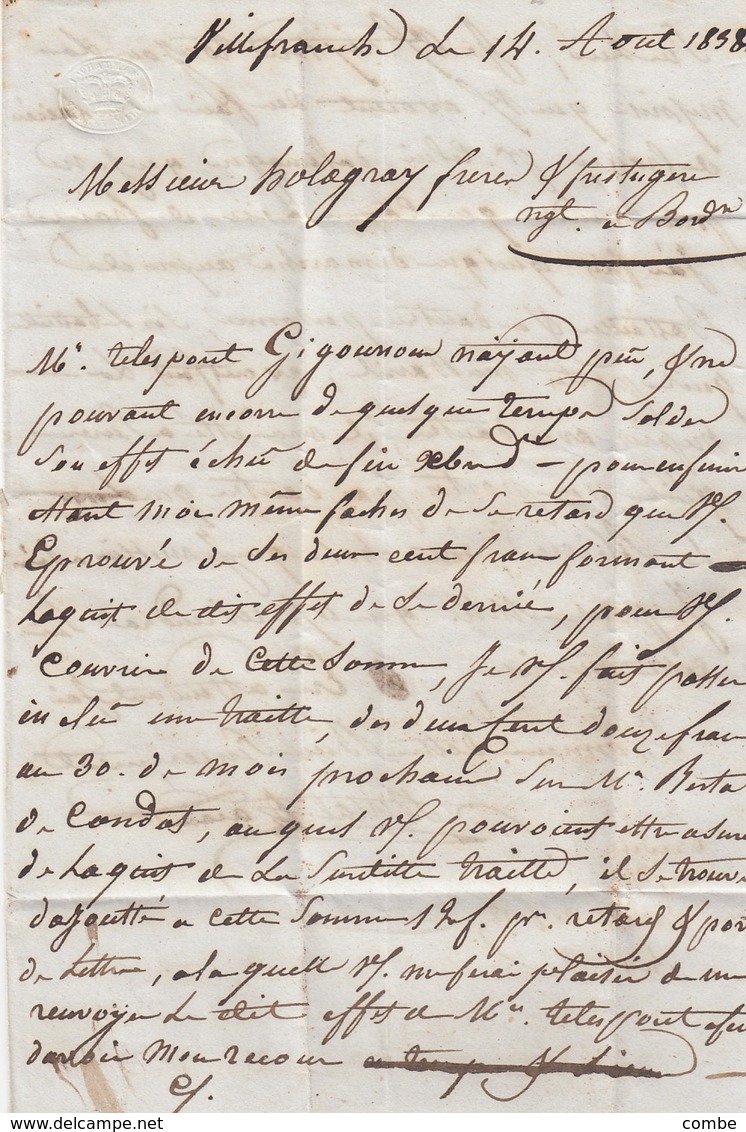 Villefranche Le 14. Aout 1838
Messieurs holagray freres &
ngt. a Bordx
Mr. telespont Gigounoux näyant peü, & ne
pouvant encorre de quelque temps Solder
Son effet échü de fin xbre dr – pour en finir
Etant moi même faches de Se retard que V/.
Eprouvé de Ses deux cent franc formant
Laquit de dit effet de Se dernié, pour V/.
Couvrir de Cette Somme, Je V/. fait passer
inclü une traitte, des deux Cent douze franc
au 30. de mois prochain Sur Mr. Berta
de Condat, au quel V/. pouvoint ettre asuré
de Laquit de La Surditte traitte, il Se trouve
dajoutté a Cette Somme 12f. pr. retard & por
de Lettre, a la quelle V/. me ferai plaisir de me
renvoyer Le dit effet de Mr. telespont afin
davoir mon recour a temp & Lieu
C/.
combe